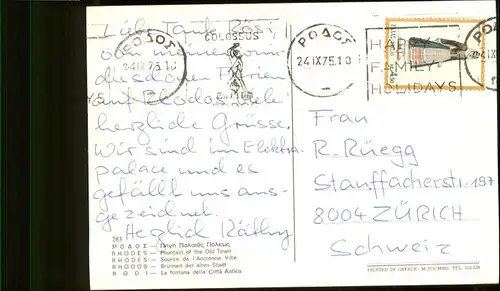 Liebe Tante Rösi,
von meinen wun-
dersch̶önen Ferien
auf Rhodos viele
herzliche Grüsse.
Wir sind im Elektra
palace und es
gefällt uns aus-
gezeichnet.
Herzlich Käthy
ΡΟΔΟΣ
24 IX 75. 10
COLOSSUS
ΡΟΔΟΣ
24 IX 75. 10
HAPPY
FAMILY
HOLIDAYS
Frau
R. Rüegg
Stauffacherstr. 197
8004 ZÜRICH
Schweiz
283
ΡΟΔΟΣ – Πηγή Παλαιᾶς Πόλεως
RHODES – Fountain of the Old Town
RHODES – Source de l'Ancienne Ville
RHODOS – Brunnen der alten Stadt
RODI – La fontana della Città Antica
PRINTED IN GREECE - M. TOUMBIS. TEL.